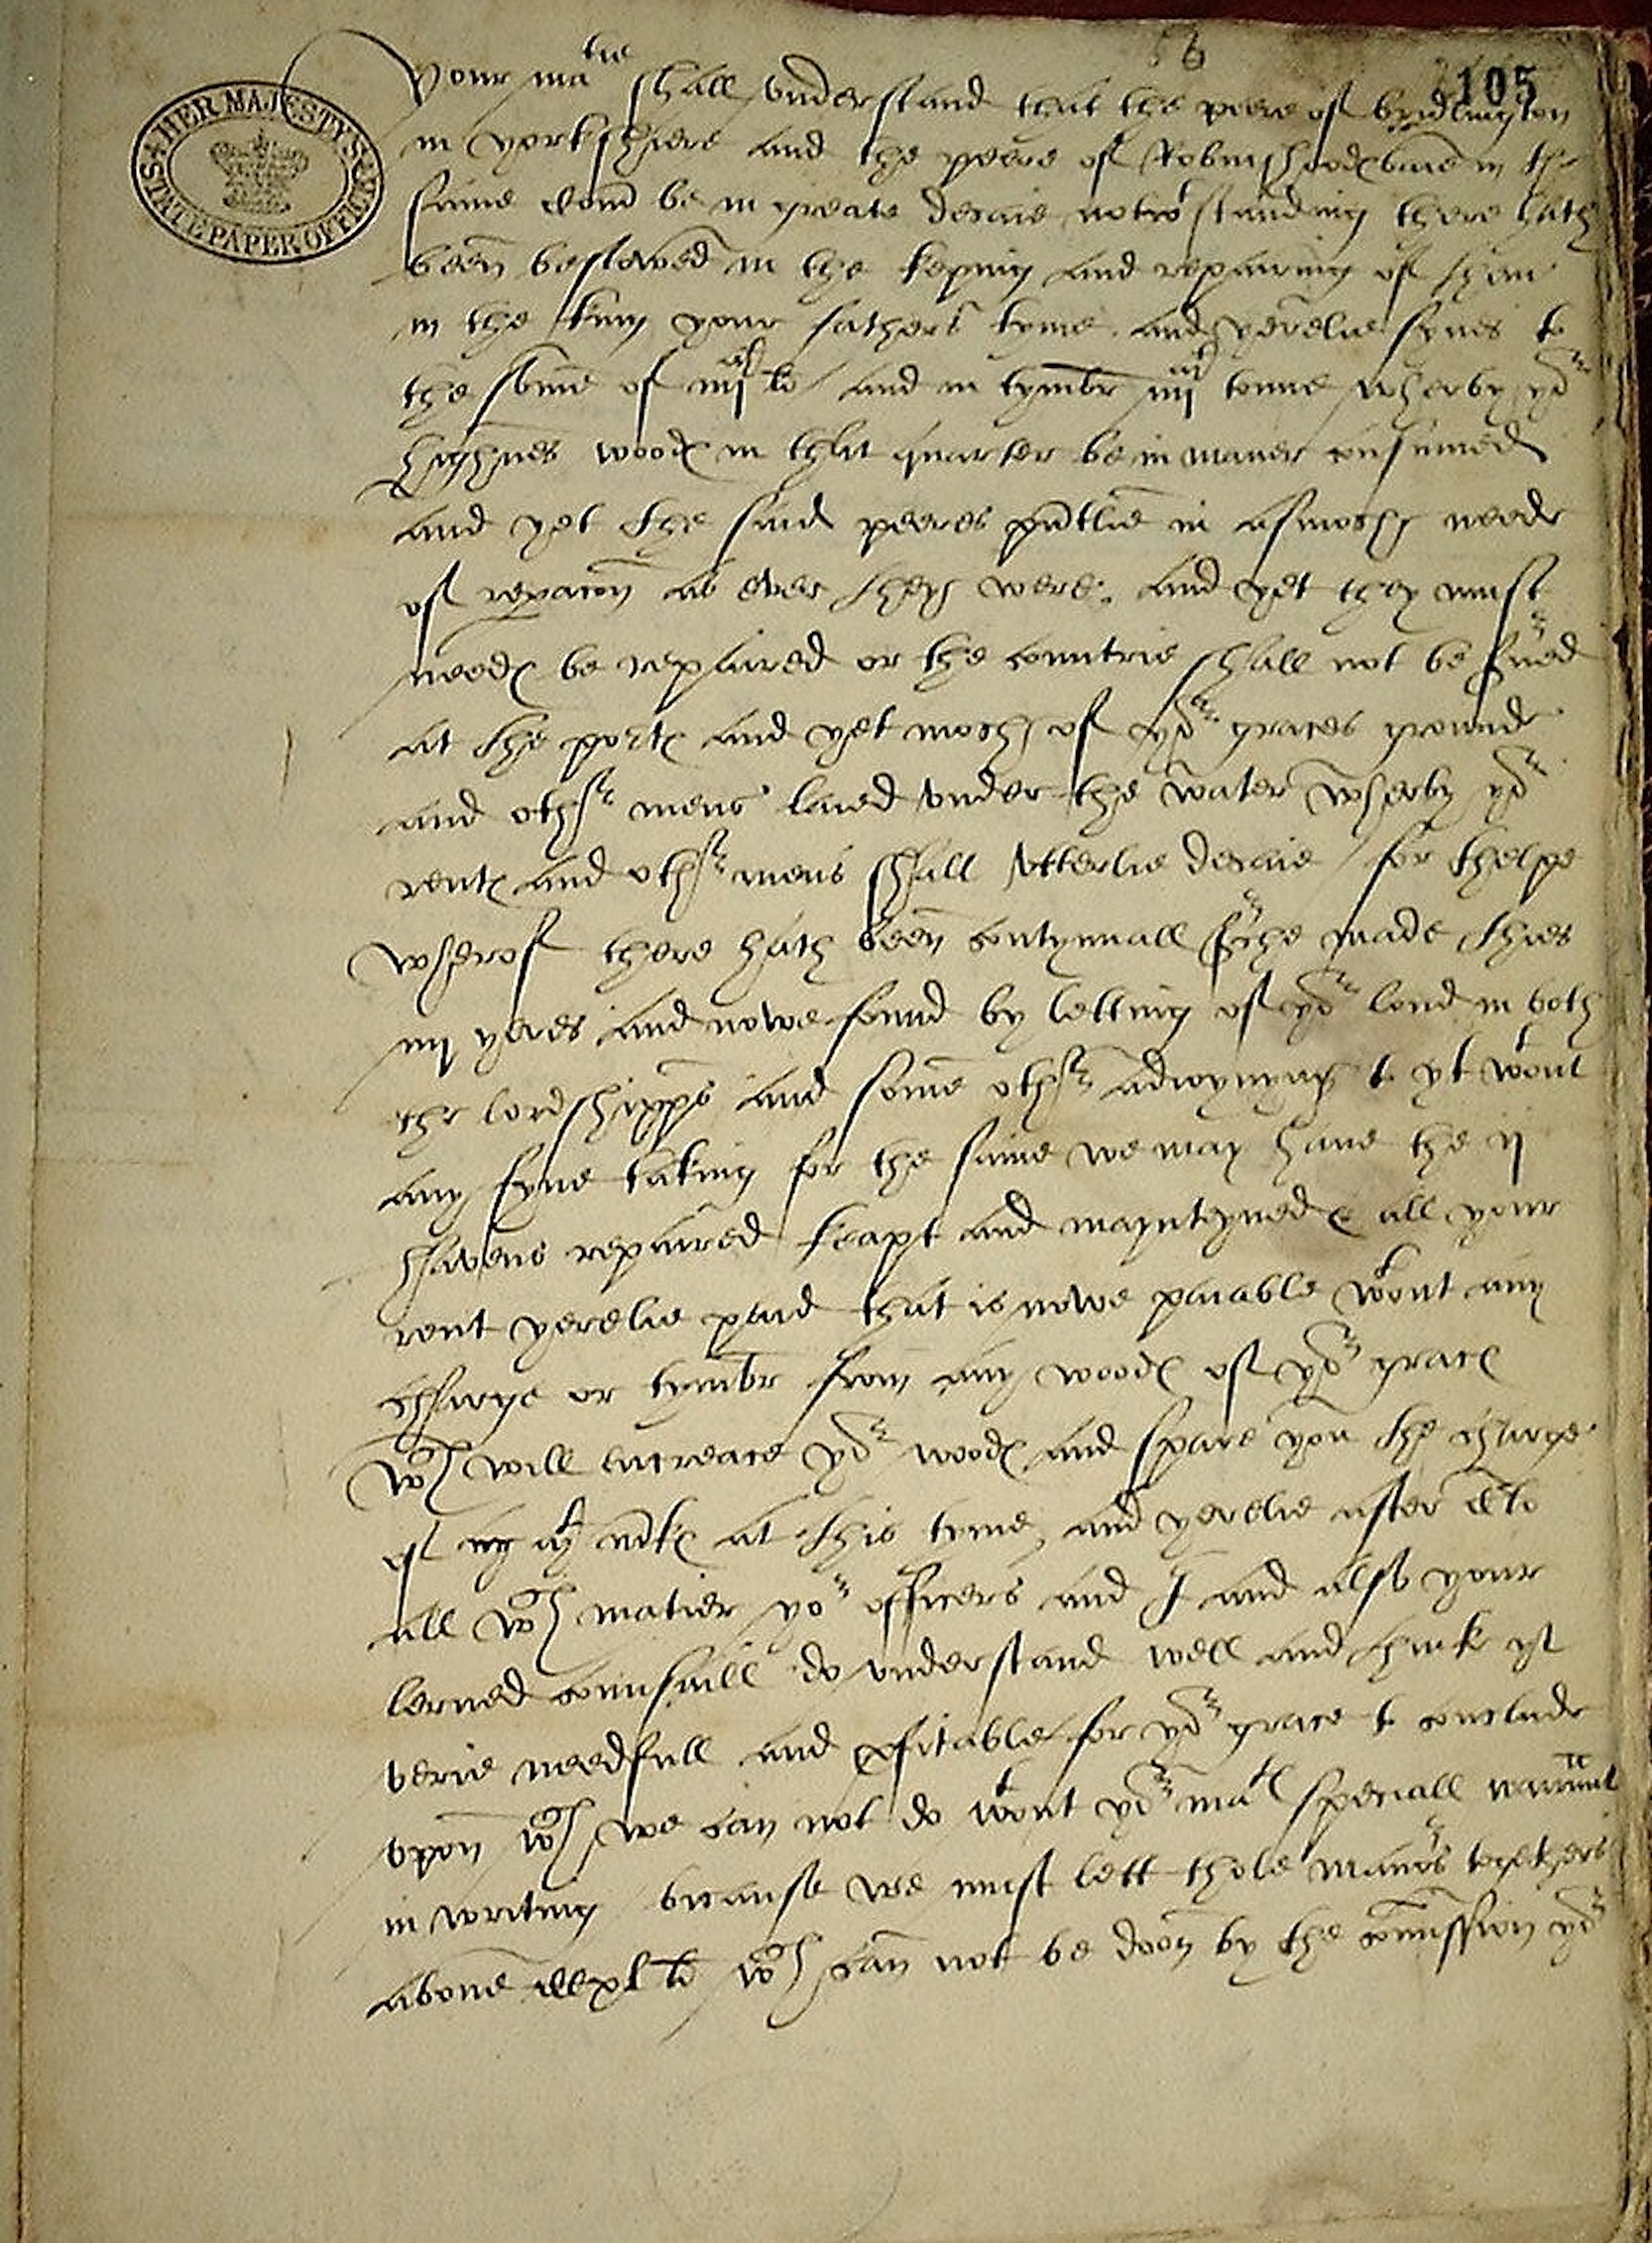 56
105
HER MAJESTY'S STATE PAPER OFFICE
Your ma^tie shall vnderstand that the peere of bridlington
in yorkshiere and the peere of Robinhoodes baie in the
same Com be in greate decaie notw^tstanding there hath
been bestowed in the keping and repairing of them
in the king your fathers tyme and yerelie synes to
the some of li and in tymbr tonne wherby yo^r
highnes woodes in that quarter be in maner consumed
and yet the said peeres pntlie in asmoch neede
of repacon as ever they were, and yet they must
needes be repaired or the countrie shall not be s^rued
at the portes and yet moch of yo^r graces grounde
and oth^r mens laied vnder the water wherby yo^r
rentes and oth^r mens shall vtterlie decaie / for thelpe
wherof there hath been contynuall made thies
iiij yeres and nowe found by letting of yo^r lond in both
the lordshipps and some oth^r adioynyng to yt w^tout
any fyne taking for the same we may haue the ij
havens repaired keapt and mayntyned & all your
rent yerelie paid that is nowe paiable w^tout any
charge or tymbr from any woodes of yo^r graces
w^ch will encreace yo^r woodes and spare you the charge
of mkes at this tyme, and yerelie after li
all w^ch matier yo^r officers and I and also your
lerned counsaill do vnderstand well and think yt
verie needfull and pfitable for yo^r grace to conclude
vpon w^ch we can not do w^tout yo^r ma^tes speciall warrant
in writing bicause we must lett thole man^rs togethers
aboue li w^ch can not be doon by the comission yo^r